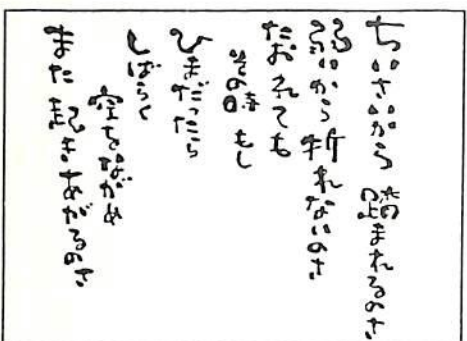 ちいさいから 踏まれるのさ
弱いから 折れないのさ
たおれても
その時 もし
ひまだったら
しばらく
空をながめ
また 起きあがるのさ